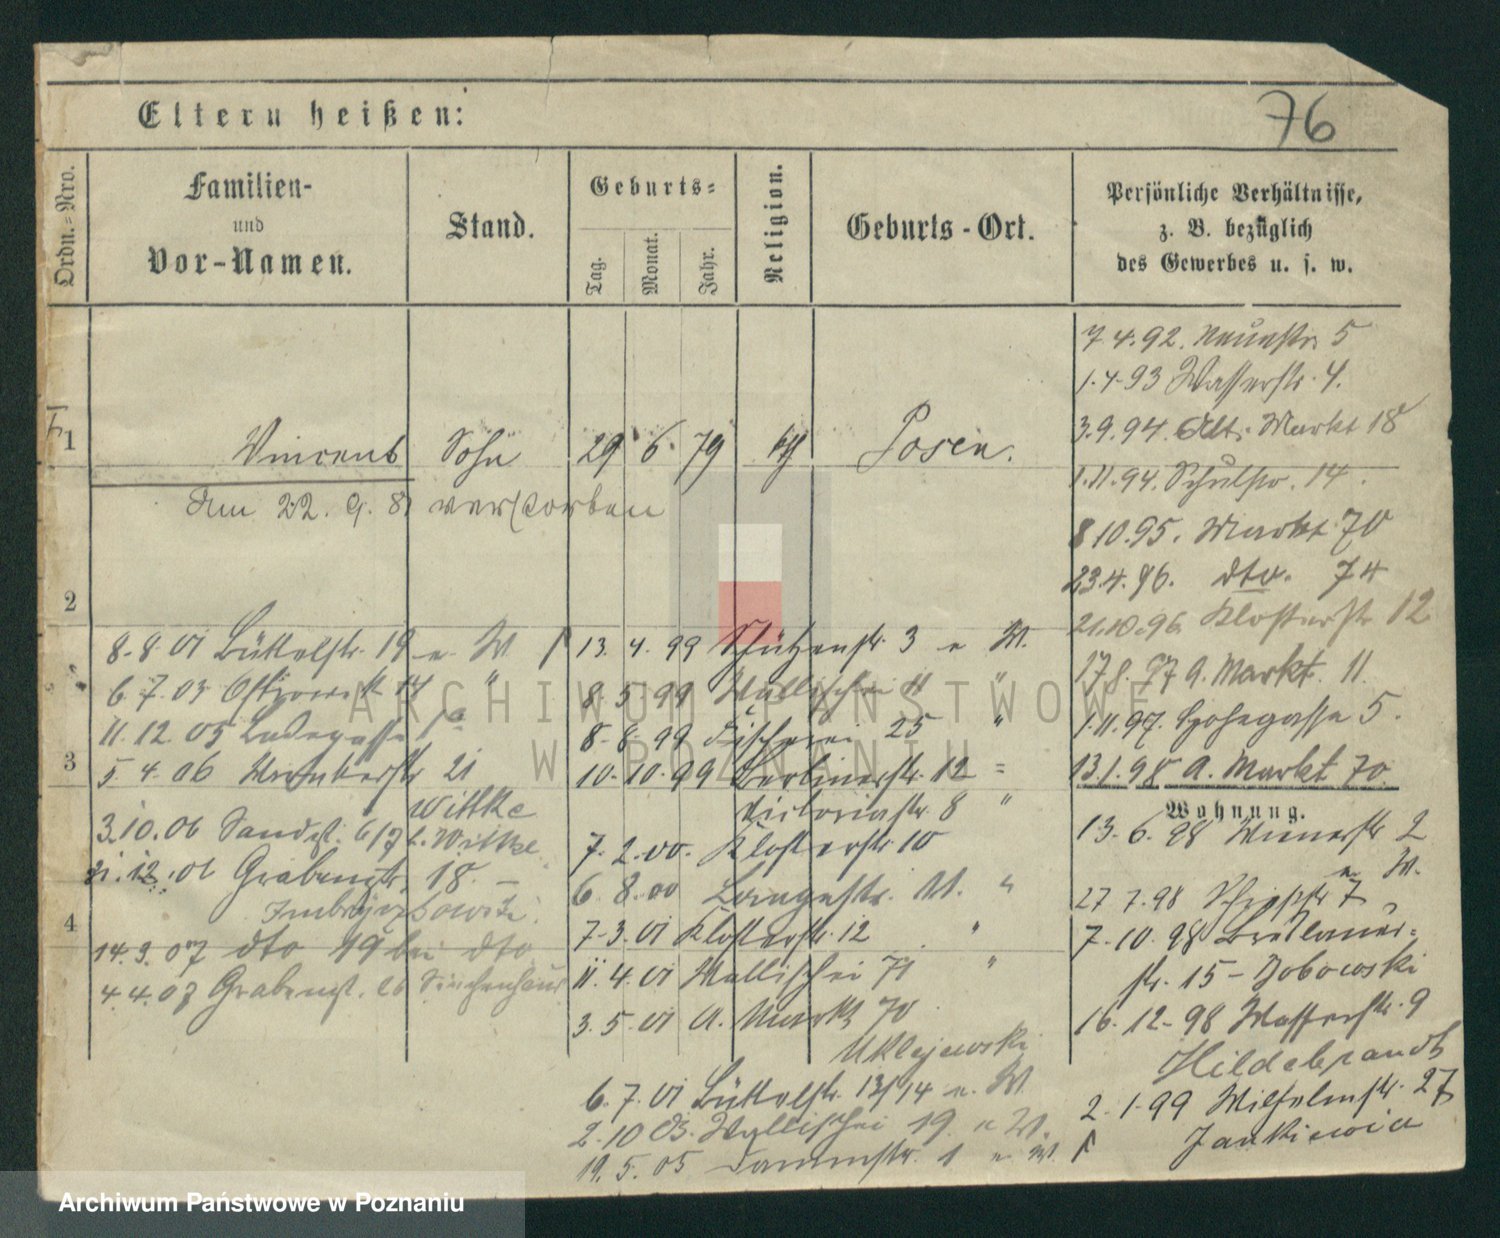 Eltern heißen:
76
Ordn.=Nro.
Familien-
und
Vor-Namen.
Stand.
Geburts=
Tag.
Monat.
Jahr.
Religion.
Geburts-Ort.
Persönliche Verhältnisse,
z. B. bezüglich
des Gewerbes u. s. w.
7 4.92. Neuestr. 5
1.4.93 Wasserstr. 4.
3.9.94. Alt. Markt 18
1 Vincent Sohn 29 6 79 kth Posen.
1.11.94. Schulstr. 14.
Am 22. 9. 81 verstorben
8 10.95. Markt 70
23.4.96. dto. 74
2
21.10.96. Klosterstr. 12
17.8.97 A. Markt. 11.
1.11.97. Hohegasse 5.
13.1.98 A. Markt 70
Wohnung.
13. 6. 98 Wienerstr. 2
e W.
27 7.98 7
7. 10. 98 Breslauer-
str. 15 - Dobowski
16. 12. 98 Wasserstr. 9
Hildebrandt
2. 1.99 Wilhelmstr. 27
Jankiewicz
13. 4. 99 Schützenstr. 3 e W.
8. 5. 99 Wallischei 11 "
8. 8. 99 Fischerei 25 "
10. 10. 99 Berlinerstr. 12 =
Victoriastr. 8 "
7. 2. 00. Klosterstr. 10
6 8. 00 Langestr. 11. "
7. 3. 01 Klosterstr. 12 "
11. 4. 01 Wallischei 71 "
3. 5. 01 A. Markt 70
Uklejewski
6. 7. 01 Büttelstr. 13/14 e. W
2. 10 03. Wallischei 19 e W.
19. 5. 05 Dammstr. 1 e W
8. 8. 01 Büttelstr. 19 e. W.
6 7. 03 "
11. 12. 05 Ludwigasse
3
5. 4. 06 21
Wittke
3. 10. 06 Sandstr. 6/7 b. Wittke
21. 12. 06 Grabenstr. 18. -
4
14. 3. 07 dto 19 bei dto
4. 4. 07 Grabenstr. 26 Siechenhaus
ARCHIWUM PAŃSTWOWE
W POZNANIU
Archiwum Państwowe w Poznaniu